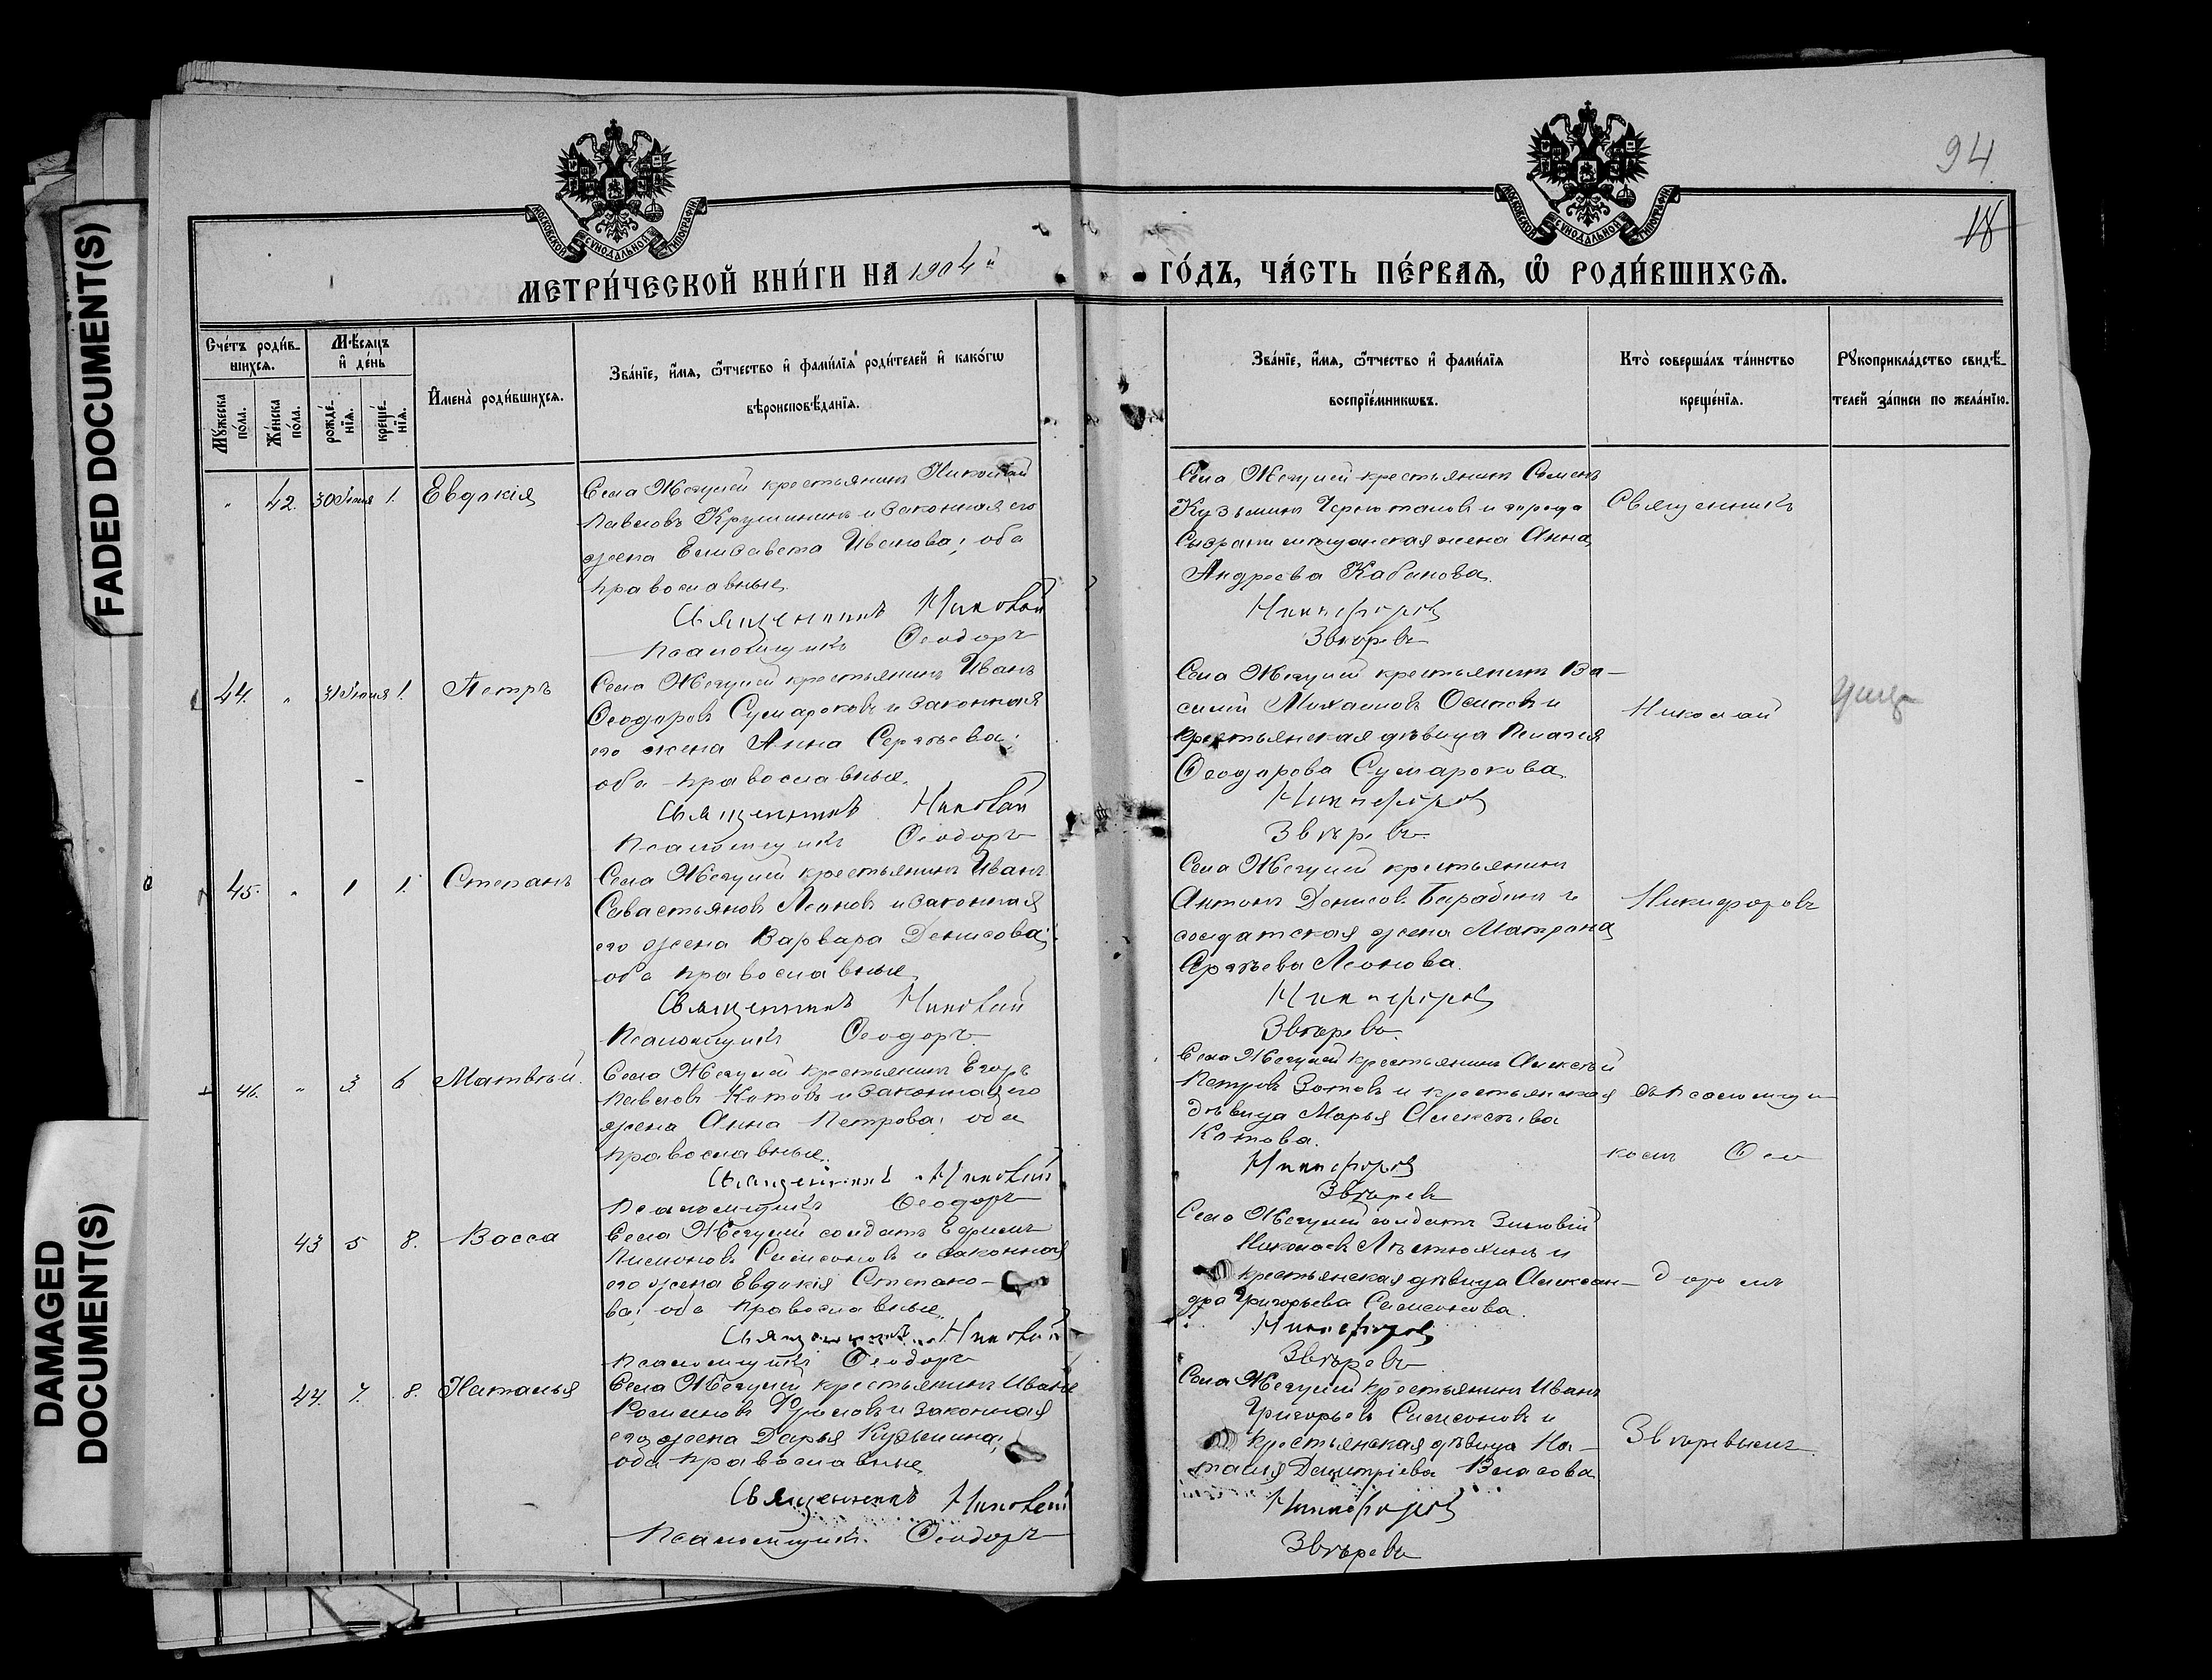 FADED DOCUMENT(S)
DAMAGED
DOCUMENT(S)
94
18
МОСКОВСКОЙ СѴНОДАЛЬНОЙ ТИПОГРАФІИ
МОСКОВСКОЙ СѴНОДАЛЬНОЙ ТИПОГРАФІИ
МЕТРИ́ЧЕСКОЙ КНИ́ГИ НА 1904й ГО́ДЪ, ЧА́СТЬ ПЕ́РВАѦ, Ѡ РОДИ́ВШИХСѦ.
Сче́тъ роди́в-
шихсѧ.
Мꙋ́жеска
по́ла.
Же́нска
по́ла.
Мѣ́сѧцъ
и҆ де́нь
рожде́-
нїѧ.
креще́-
нїѧ.
И҆мена̀ роди́вшихсѧ.
Зва́нїе, и҆́мѧ, ѻ҆́тчество и҆ фами́лїѧ роди́телей и҆ како́гѡ
вѣроисповѣ́данїѧ.
Зва́нїе, и҆́мѧ, ѻ҆́тчество и҆ фами́лїѧ
воспрїе́мникѡвъ.
Кто̀ соверша́лъ та́инство
креще́нїѧ.
Рꙋкоприкла́дство свидѣ́-
телей за́писи по жела́нїю.
" 42. 30 Іюня 1. Евдокія
Села Жегулей крестьянинъ Николай
Павловъ Крушининъ и законная его
жена Елисавета Ивлиова; оба
православные.
Священникъ Николай
Псаломщикъ Ѳеодоръ
Села Жегулей крестьянинъ Семенъ
Кузьминъ и города
Сызрани мещанская жена Анна
Андреева Кабанова.
Никифоровъ
Звѣревъ
Священникъ
44. " 31 Іюня 1. Петръ
Села Жегулей крестьянинъ Иванъ
Ѳеодоровъ Сумароковъ и законная
его жена Анна Сергѣева;
оба православные.
Священникъ Николай
Псаломщикъ Ѳеодоръ
Села Жегулей крестьянинъ Ва-
силій Михаиловъ Осиповъ и
крестьянская дѣвица Пелагея
Ѳеодорова Сумарокова.
Никифоровъ
Звѣревъ
Николай
45. " 1 1. Степанъ
Села Жегулей крестьянинъ Иванъ
Севастьяновъ Леоновъ и законная
его жена Варвара Денисова;
оба православные
Священникъ Николай
Псаломщикъ Ѳеодоръ
Села Жегулей крестьянинъ
Антонъ Денисовъ Барабинъ и
солдатская жена Матрона
Сергѣева Леонова.
Никифоровъ
Звѣревъ.
Никифоровъ
46. " 3 6 Матвѣй.
Села Жегулей крестьянинъ Егоръ
Павловъ Котовъ и законная его
жена Анна Петрова; оба
православные.
Священникъ Николай
Псаломщикъ Ѳеодоръ
Села Жегулей крестьянинъ Алексѣй
Петровъ Зотовъ и крестьянская
дѣвица Марья Алексѣева
Котова.
Никифоровъ
Звѣревъ
съ псаломщи-
комъ Ѳео
43 5 8. Васса
Села Жегулей солдатъ Ефимъ
Симсоновъ и законная
его жена Евдокія Степано-
ва; оба православные.
Священникъ Николай
Псаломщикъ Ѳеодоръ
Села Жегулей солдатъ Зиновій
и
крестьянская дѣвица Алексан-
дра Григорьева Симсонова.
Никифоровъ
Звѣревъ
доромъ
44. 7. 8. Наталья
Села Жегулей крестьянинъ Иванъ
Романовъ Фроловъ и законная
его жена Дарья Кузьмина;
оба православные
Священникъ Николай
Псаломщикъ. Ѳеодоръ
Села Жегулей крестьянинъ Иванъ
Григорьевъ Симсоновъ и
крестьянская дѣвица На-
талья Димитріева Власова
Никифоровъ
Звѣревъ
Звѣревымъ.